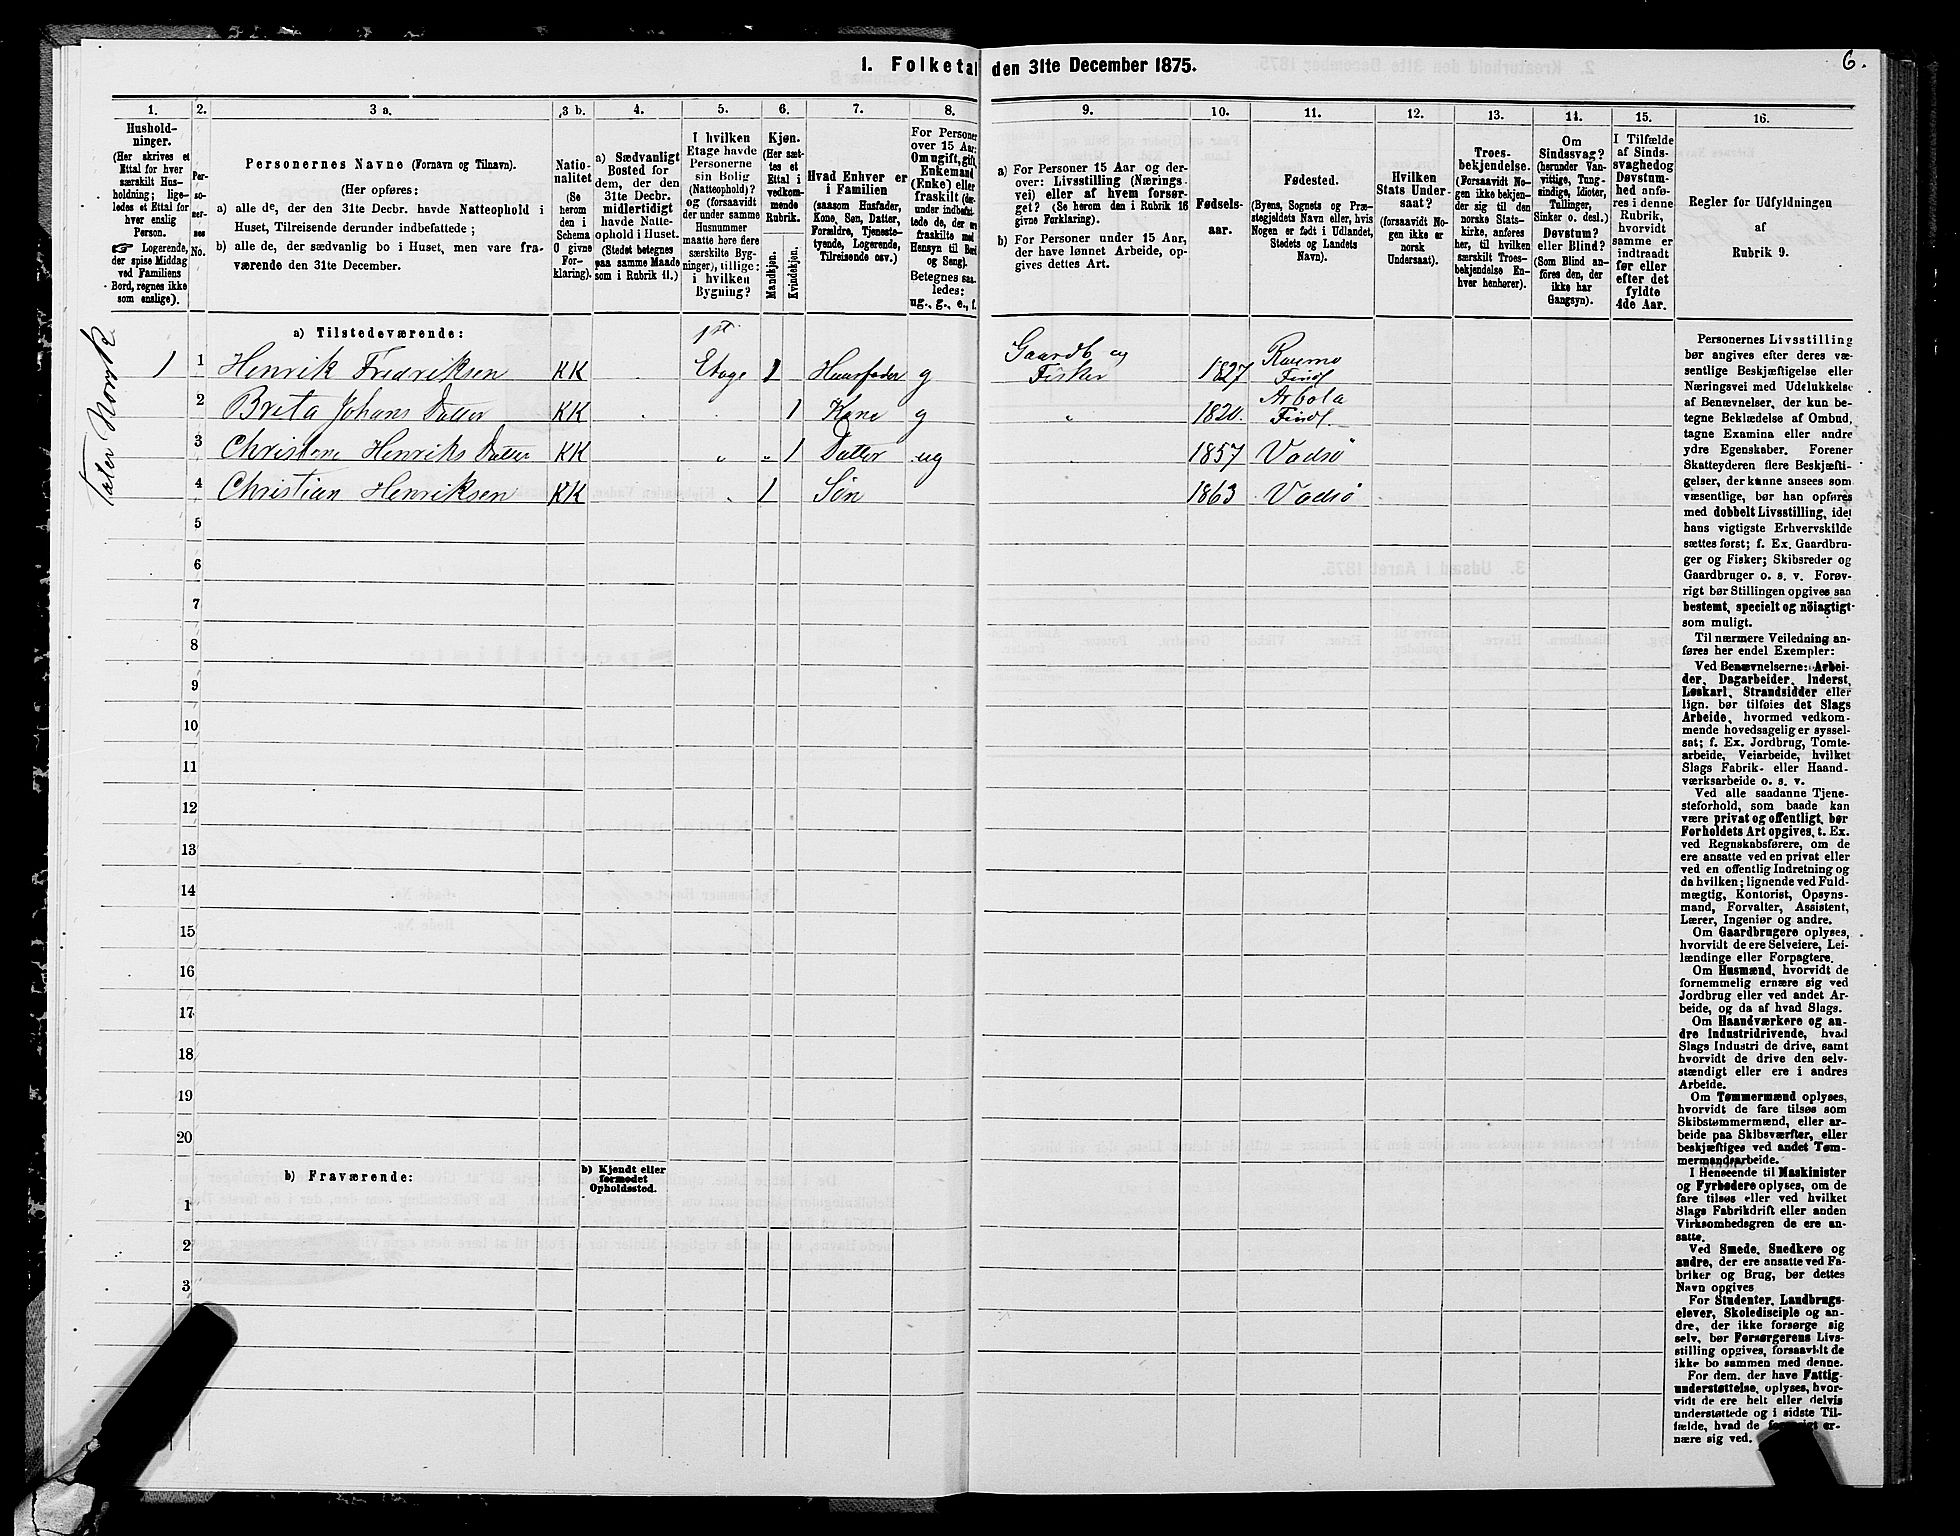 1. Folketa den 31te December 1875.
6.
1.
Hushold-
ninger.
(Her skrives et
Ettal for hver
særskilt Hus-
holdning; lige-
ledes et Ettal for
hver enslig
Person.
☞ Logerende,
der spise Middag
ved Familiens
Bord, regnes ikke
som enslige).
2.
Per-
so-
ner-
nes
No.
3 a.
Personernes Navne (Fornavn og Tilnavn).
(Her opføres:
a) alle de, der den 31te Decbr. havde Natteophold i
Huset, Tilreisende derunder indbefattede;
b) alle de, der sædvanlig bo i Huset, men vare fra-
værende den 31te December.
3 b.
Natio-
nalitet
(Se
herom
den i
Schema
O givne
For-
klaring).
4.
a) Sædvanligt
Bosted for
dem, der den
31te Decbr.
midlertidigt
havde Natte-
ophold i Huset.
(Stedet betegnes
paa samme Maade
som i Rubrik 11.)
5.
I hvilken
Etage havde
Personerne
sin Bolig
(Natteophold)?
og (forsaavidt
der under samme
Husnummer
maatte høre flere
særskilte Byg-
ninger), tillige:
i hvilken
Bygning?
6.
Kjøn.
(Her sæt-
tes et
Ettal i
vedkom-
mende
Rubrik.
Mandkjøn.
Kvindekjøn.
7.
Hvad Enhver er
i Familien
(saasom Husfader,
Kone, Søn, Datter,
Forældre, Tjeneste-
tyende, Logerende,
Tilreisende osv.)
8.
For Personer
over 15 Aar:
Om ugift, gift,
Enkemand
(Enke) eller
fraskilt (der-
under indbefat-
tede de, der ere
fraskilte med
Hensyn til Bord
og Seng).
Betegnes saa-
ledes:
ug., g., e., f.
9.
a) For Personer 15 Aar og der-
over: Livsstilling (Nærings-
vei) eller af hvem forsør-
get? (Se herom den i Rubrik 16
givne Forklaring).
b) For Personer under 15 Aar,
der have lønnet Arbeide, op-
gives dettes Art.
10.
Fødsels-
aar.
11.
Fødested.
(Byens, Sognets og Præ-
stegjeldets Navn eller, hvis
Nogen er født i Udlandet,
Stedets og Landets
Navn).
12.
Hvilken
Stats Under-
saat?
(forsaavidt No-
gen ikke er
norsk
Undersaat).
13.
Troes-
bekjendelse.
(Forsaavidt No-
gen ikke bekjen-
der sig til den
norske Stats-
kirke, anføres
her, til hvilken
særskilt Troes-
bekjendelse En-
hver henhører).
14.
Om
Sindssvag?
(herunder Van-
vittige, Tung-
sindige, Idioter,
Tullinger,
Sinker o. desl.)
Døvstum?
eller Blind?
(Som Blind an-
føres den, der
ikke har
Gangsyn).
15.
I Tilfælde
af Sinds-
svaghed og
Døvstum-
hed anfø-
res i denne
Rubrik,
hvorvidt
samme er
indtraadt
før eller
efter det
fyldte
4de Aar.
16.
Regler for Udfyldningen
af
Rubrik 9.
Taler Norsk
a) Tilstedeværende:
1 1 Henrik Fredriksen KK 1st. Etage 1 Huusfader g Gaardb og Fisker 1827 Finl.
2 Breta Johans Datter KK 1 Kone g " 1820. Arbola Finl.
3 Christene Henriks Datter KK " " 1 Datter ug 1857 Vadsø
4 Christian Henriksen KK 1 Søn 1863 Vadsø
5
6
7
8
9
10
11
12
13
14
15
16
17
18
19
20
b) Fraværende:
b) Kjendt eller
formodet
Opholdssted.
1
2
3
Personernes Livsstilling
bør angives efter deres væ-
sentlige Beskjæftigelse eller
Næringsvei med Udelukkelse
af Benævnelser, der kun be-
tegne Beklædelse af Ombud,
tagne Examina eller andre
ydre Egenskaber. Forener
Skatteyderen flere Beskjæfti-
gelser, der kunne ansees som
væsentlige, bør han opføres
med dobbelt Livsstilling, idet
hans vigtigste Erhvervskilde
sættes først; f. Ex. Gaardbru-
ger og Fisker; Skibsreder og
Gaardbruger o. s. v. Forøv-
rigt bør Stillingen opgives saa
bestemt, specielt og nøiagtigt
som muligt.
Til nærmere Veiledning an-
føres her endel Exempler:
Ved Benævnelserne: Arbei-
der, Dagarbeider, Inderst,
Løskarl, Strandsidder eller
lign. bør tilføies det Slags
Arbeide, hvormed vedkom-
mende hovedsagelig er syssel-
sat; f. Ex. Jordbrug, Tomte-
arbeide, Veiarbeide, hvilket
Slags Fabrik- eller Haand-
værksarbeide o. s. v.
Ved alle saadanne Tjene-
steforhold, som baade kan
være privat og offentligt, bør
Forholdets Art opgives, t. Ex.
ved Regnskabsførere, om de
ere ansatte ved en privat eller
ved en offentlig Indretning og
da hvilken; lignende ved Fuld-
mægtig, Kontorist, Opsyns-
mand, Forvalter, Assistent,
Lærer, Ingeniør og andre.
Om Gaardbrugere oplyses,
hvorvidt de ere Selveiere, Lei-
lændinge eller Forpagtere.
Om Husmænd, hvorvidt de
fornemmelig ernære sig ved
Jordbrug eller ved andet Ar-
beide, og da af hvad Slags.
Om Haandværkere og an-
dre Industridrivende, hvad
Slags Industri de drive, samt
hvorvidt de drive den selv-
stændigt eller ere i andres
Arbeide.
Om Tømmermænd oplyses,
hvorvidt de fare tilsøs som
Skibstømmermænd, eller ar-
beide paa Skibsværfter, eller
beskjæftiges ved andet Tøm-
mermandsarbeide.
I Henseende til Maskinister
og Fyrbødere oplyses, om de
fare tilsøs eller ved hvilket
Slags Fabrikdrift eller anden
Virksomhedsgren de ere an-
satte.
Ved Smede, Snedkere og
andre, der ere ansatte ved Fa-
briker og Brug, bør dettes
Navn opgives
For Studenter, Landbrugs-
elever, Skoledisciple og an-
dre, der ikke forsørge sig
selv, bør Forsørgerens Livs-
stilling opgives, forsaavidt de
ikke bo sammen med denne.
For dem, der have Fattig-
understøttelse, oplyses, hvor-
vidt de ere helt eller delvis
understøttede og i sidste Til-
fælde, hvad de er-
nære sig ved.